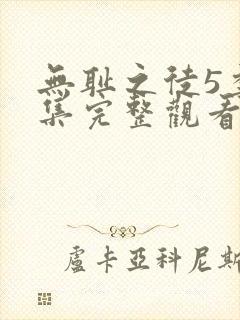 無耻之徒5
集完整觀看
盧卡亞科尼斯